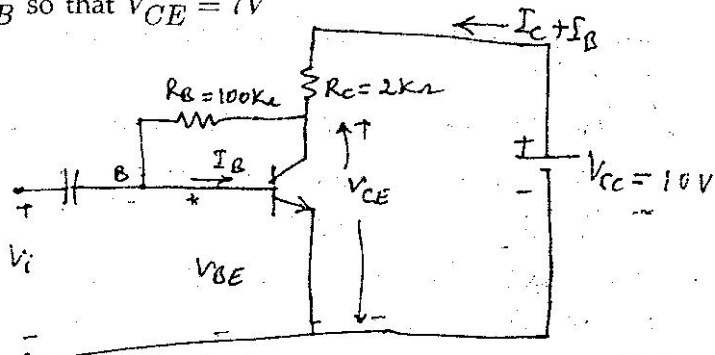 B so that V_CE = 7V
I_C + I_B
R_B = 100KΩ
R_C = 2KΩ
+
+
B
I_B
V_CE
V_CC = 10V
-
+
*
V_i
V_BE
-
-
-